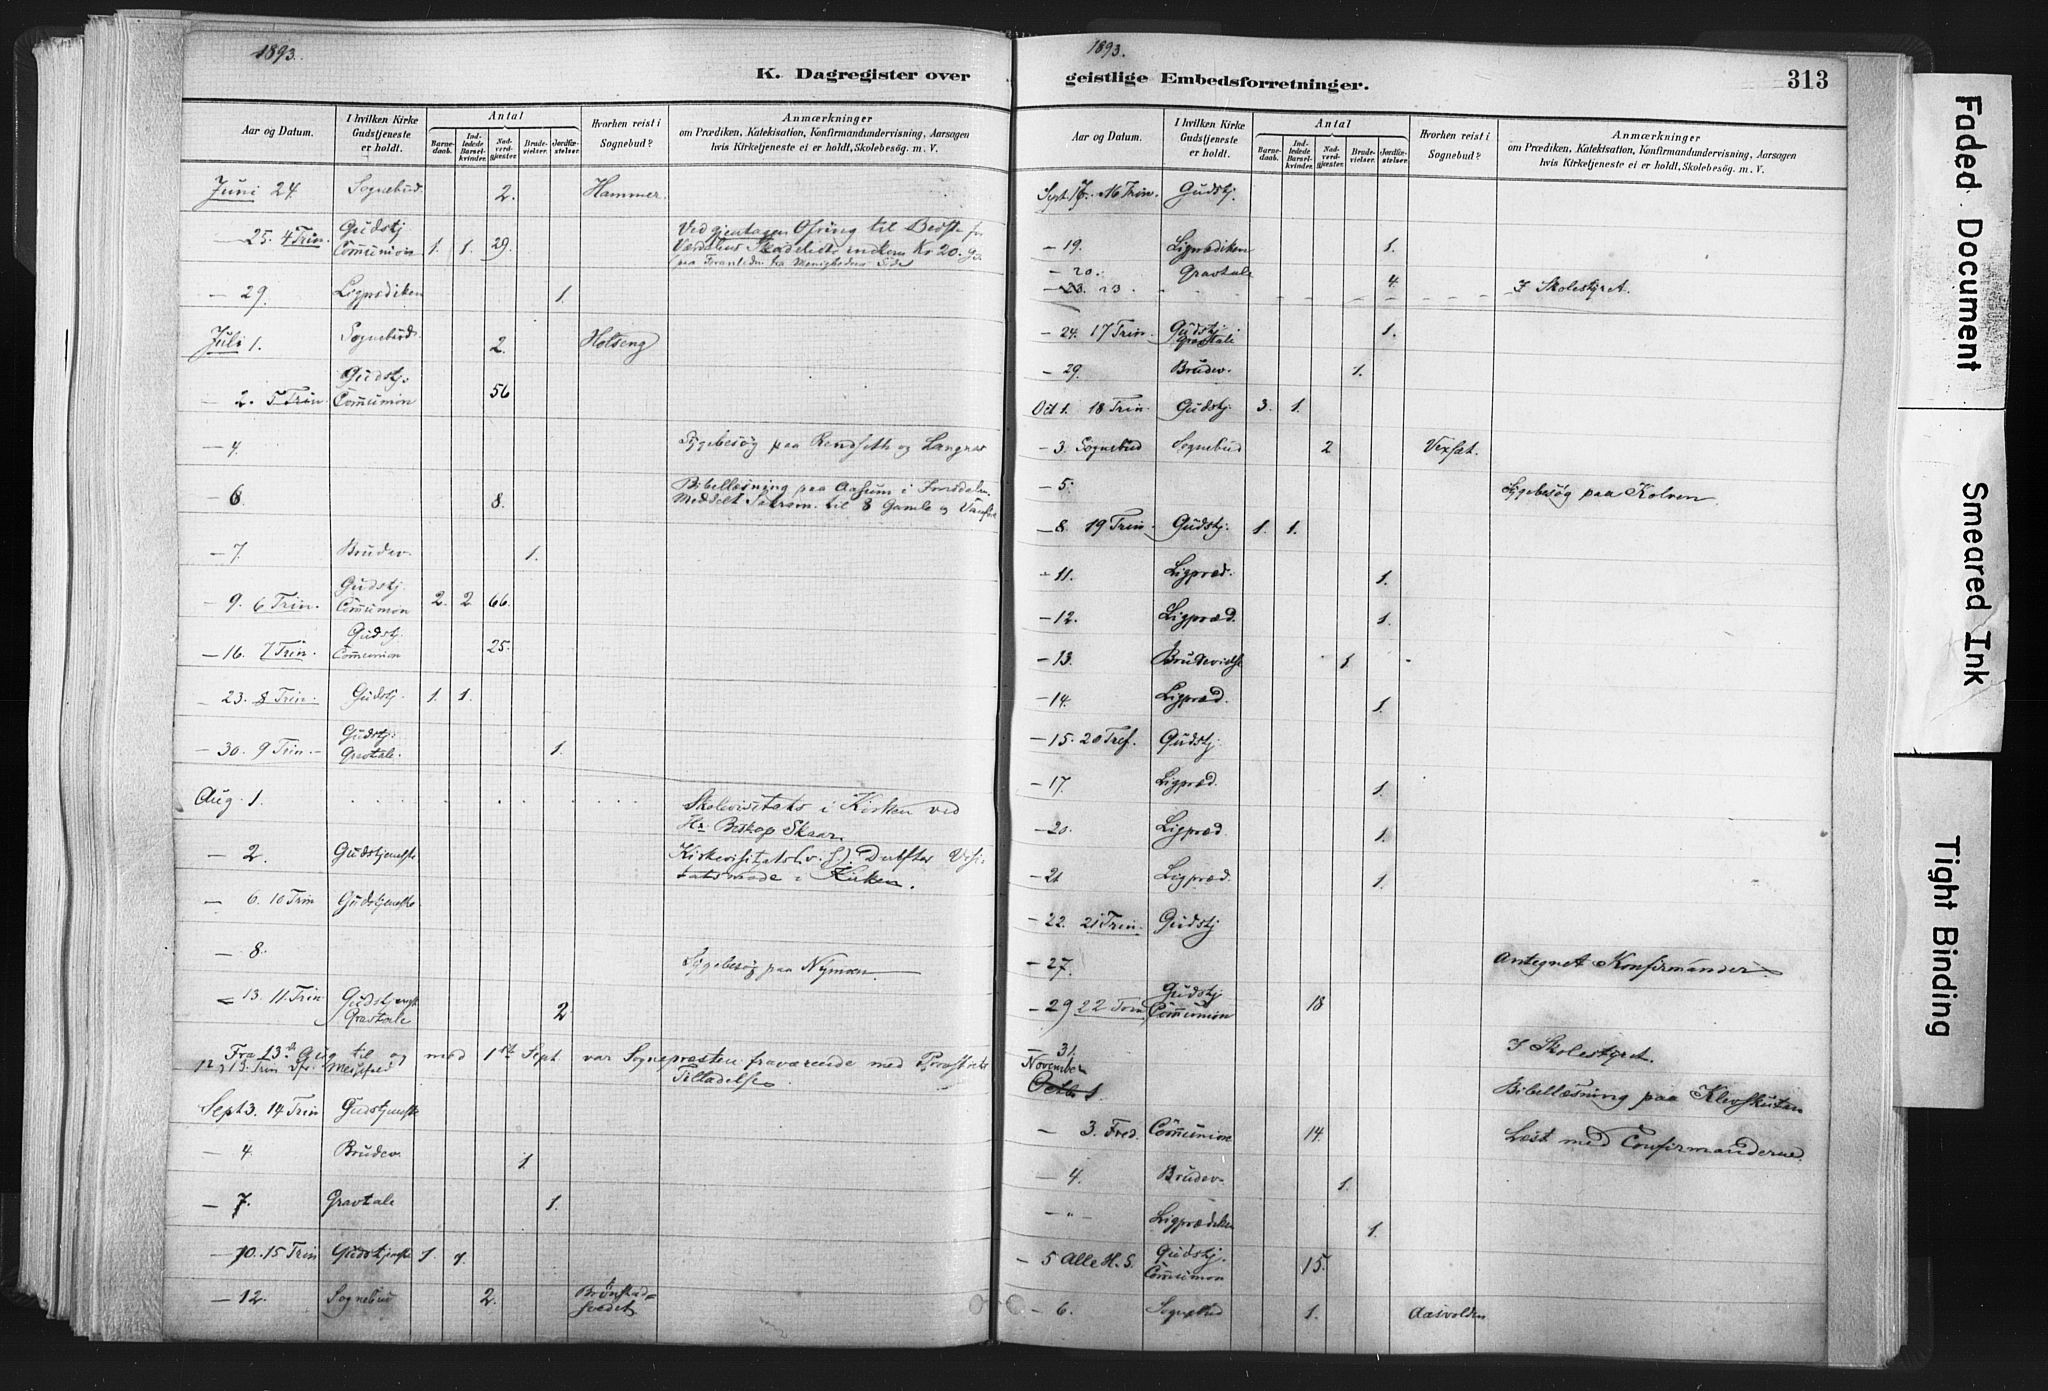 1893.
K. Dagregister over
Aar og Datum.
I hvilken Kirke Gudstjeneste er holdt.
Antal
Barne-daab.
Ind-ledede Barsel-kvinder.
Nad-verd-gjæster.
Brude-vielser.
Jordfæ-stelser.
Hvorhen reist i Sognebud?
Anmærkninger
om Prædiken, Katekisation, Konfirmandundervisning, Aarsagen
hvis Kirketjeneste ei er holdt, Skolebesøg. m. V.
Juni 24 Sognebud. 2. Hammer.
— 25. 4 Trin. Gudstj Communion 1. 1. 29. Ved gjentagen Ofring til Bedste for
Værdalens Skadelidte indkom Kr 20.
paa Foranledn. fra Menighedens Side
— 29. Ligprædiken 1.
Juli 1. Sognebud 2. Holseng
— 2. 5 Trin. Gudstj. Communion 56
— 4. Sygebesøg paa Rendseth og Langnes
— 6 8. Bibellæsning paa Aasum i
Meddelt Sakram. til 8 Gamle og
— 7. Brudev. 1.
— 9. 6 Trin. Gudstj. Communion 2. 2 66.
— 16. 7 Trin. Gudstj. Communion 25.
— 23. 8 Trin. Gudstj. 1. 1.
— 30. 9 Trin. Gudstj. Gravtale. 1.
Aug. 1. Skolevisitats i Kirken ved
Hr. Biskop Skaar.
— 2. Gudstjeneste Kirkevisitats (v. s.). Derefter Visi-
tatsmøde i Kirken.
— 6. 10 Trin Gudstjeneste
— 8. Sygebesøg paa Nymoen.
— 13. 11. Trin Gudstjeneste Gravtale 2
Fra 13de Aug. til og med 1ste Sept. var Sognepræsten fraværende med Provstiets
12 og 13. Trin Tilladelse.
Sept 3. 14 Trin Gudstjeneste
— 4. Brudev. 1
— 7. Gravtale 1.
— 10. 15 Trin Gudstjeneste 1. 1.
— 12. Sognebud 2. Brønstad-
svedet
1893.
geistlige Embedsforretninger.
313
Aar og Datum.
I hvilken Kirke Gudstjeneste er holdt.
Antal
Barne-daab.
Ind-ledede Barsel-kvinder.
Nad-verd-gjæster.
Brude-vielser.
Jordfæ-stelser.
Hvorhen reist i Sognebud?
Anmærkninger
om Prædiken, Katekisation, Konfirmandundervisning, Aarsagen
hvis Kirketjeneste ei er holdt, Skolebesøg. m. V.
Sept. 17. 16 Trin. Gudstj.
— 19. Ligprædiken 1.
— 20. Gravtale
— 23. 23 " 4. I Skolestyret.
— 24. 17 Trin. Gudstj. Gravtale 1.
— 29. Brudev. 1.
Oct 1. 18 Trin. Gudstj. 3. 1.
— 3. Sognebud Sognebud 2 Vexsæt.
— 5. Sygebesøg paa Kolven.
— 8. 19 Trin. Gudstj. 1. 1.
— 11. Ligpræd. 1.
— 12. Ligpræd. 1.
— 13. Brudevielse 1.
— 14. Ligpræd. 1.
— 15. 20 Tref. Gudstj
— 17. Ligpræd. 1.
— 20. Ligpræd. 1.
— 21 Ligpræd. 1.
— 22. 21 Trin. Gudstj
— 27. Antegnet Konfirmander.
— 29 22 Trin Gudstj Communion 18
— 31. I Skolestyret.
November
Octbr 1. Bibellæsning paa Klevskuten
— 3. Fred. Communion 14. Læst med Confirmanderne.
— 4. Brudev. 1.
— " — Ligprædiken 1.
— 5 Alle H. S. Gudstj. Communion 15.
— 6. Sognebud 1. Aasvolden
Faded Document
Smeared Ink
Tight Binding